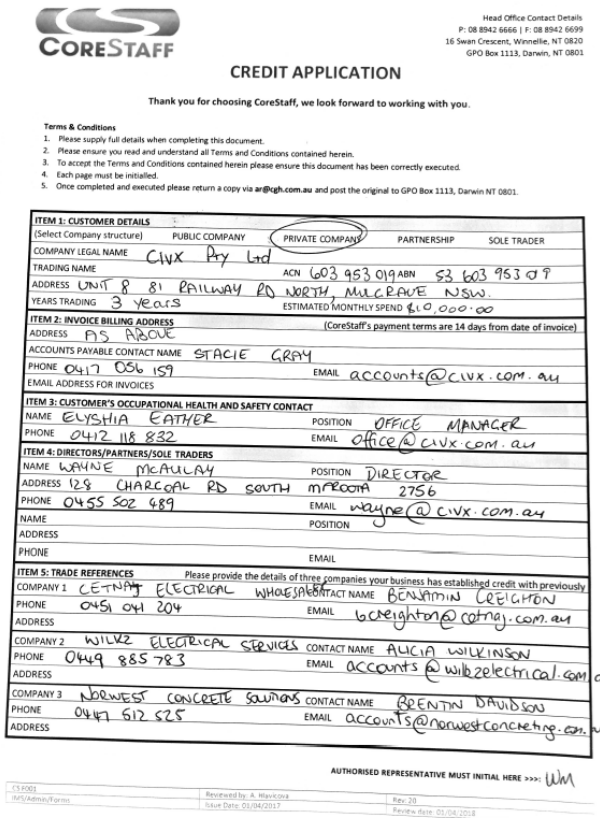 CORESTAFF
Head Office Contact Details
P: 08 8942 6666 | F: 08 8942 6699
16 Swan Crescent, Winnellie, NT 0820
GPO Box 1113, Darwin, NT 0801
CREDIT APPLICATION
Thank you for choosing CoreStaff, we look forward to working with you.
Terms & Conditions
1. Please supply full details when completing this document.
2. Please ensure you read and understand all Terms and Conditions contained herein.
3. To accept the Terms and Conditions contained herein please ensure this document has been correctly executed.
4. Each page must be initialled.
5. Once completed and executed please return a copy via ar@cgh.com.au and post the original to GPO Box 1113, Darwin NT 0801.
ITEM 1: CUSTOMER DETAILS
(Select Company structure) PUBLIC COMPANY PRIVATE COMPANY PARTNERSHIP SOLE TRADER
COMPANY LEGAL NAME CIVX Pty Ltd
TRADING NAME ACN 603 953 019 ABN 53 603 953 019
ADDRESS UNIT 8 81 RAILWAY RD NORTH, MULGRAVE NSW.
YEARS TRADING 3 years ESTIMATED MONTHLY SPEND $10,000.00
ITEM 2: INVOICE BILLING ADDRESS (CoreStaff's payment terms are 14 days from date of invoice)
ADDRESS AS ABOVE
ACCOUNTS PAYABLE CONTACT NAME STACIE GRAY
PHONE 0417 056 159 EMAIL accounts@civx.com.au
EMAIL ADDRESS FOR INVOICES
ITEM 3: CUSTOMER'S OCCUPATIONAL HEALTH AND SAFETY CONTACT
NAME ELYSHIA EATHER POSITION OFFICE MANAGER
PHONE 0412 118 832 EMAIL office@civx.com.au
ITEM 4: DIRECTORS/PARTNERS/SOLE TRADERS
NAME WAYNE McAULAY POSITION DIRECTOR
ADDRESS 128 CHARCOAL RD SOUTH MAROOTA 2756
PHONE 0455 502 489 EMAIL wayne@civx.com.au
NAME POSITION
ADDRESS
PHONE EMAIL
ITEM 5: TRADE REFERENCES Please provide the details of three companies your business has established credit with previously
COMPANY 1 CETNAJ ELECTRICAL WHOLESALER CONTACT NAME BENJAMIN CREIGHTON
PHONE 0451 041 204 EMAIL bcreighton@cetnaj.com.au
ADDRESS
COMPANY 2 WILKZ ELECTRICAL SERVICES CONTACT NAME ALICIA WILKINSON
PHONE 0449 885 783 EMAIL accounts@wilkzelectrical.com.
ADDRESS
COMPANY 3 NORWEST CONCRETE SOLUTIONS CONTACT NAME BRENTIN DAVIDSON
PHONE 0447 512 525 EMAIL accounts@norwestconcreting.com.a
ADDRESS
AUTHORISED REPRESENTATIVE MUST INITIAL HERE >>>: WM
CS F001 Reviewed by: A. Hlavicova Rev: 20
IMS/Admin/Forms Issue Date: 01/04/2017 Review date: 01/04/2018